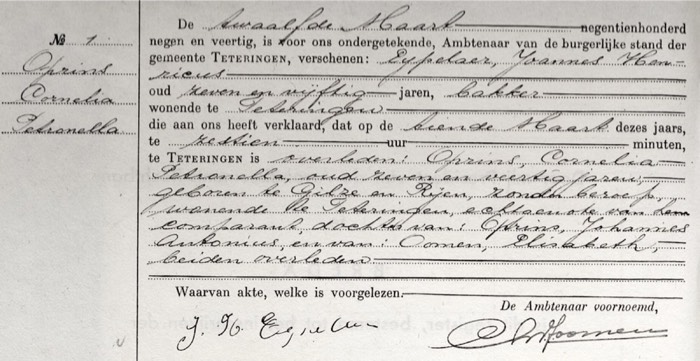 № 1
Oprins
Cornelia
Petronella
De twaalfde Maart negentienhonderd
negen en veertig, is voor ons ondergetekende, Ambtenaar van de burgerlijke stand der
gemeente TETERINGEN, verschenen: Eypelaer, Joannes Hen-
ricus
oud zeven en vijftig jaren, bakker
wonende te Teteringen
die aan ons heeft verklaard, dat op de tiende Maart dezes jaars,
te zestien uur minuten,
te TETERINGEN is overleden: Oprins, Cornelia
Petronella, oud zeven en veertig jaren,
geboren te Gilze en Rijen, zonder beroep,
wonende te Teteringen, echtgenote van den
comparant, dochter van: Oprins, Johannes
Antonius, en van: Oomen, Elisabeth,
beiden overleden
Waarvan akte, welke is voorgelezen.
De Ambtenaar voornoemd,
J. H. Eypelaer